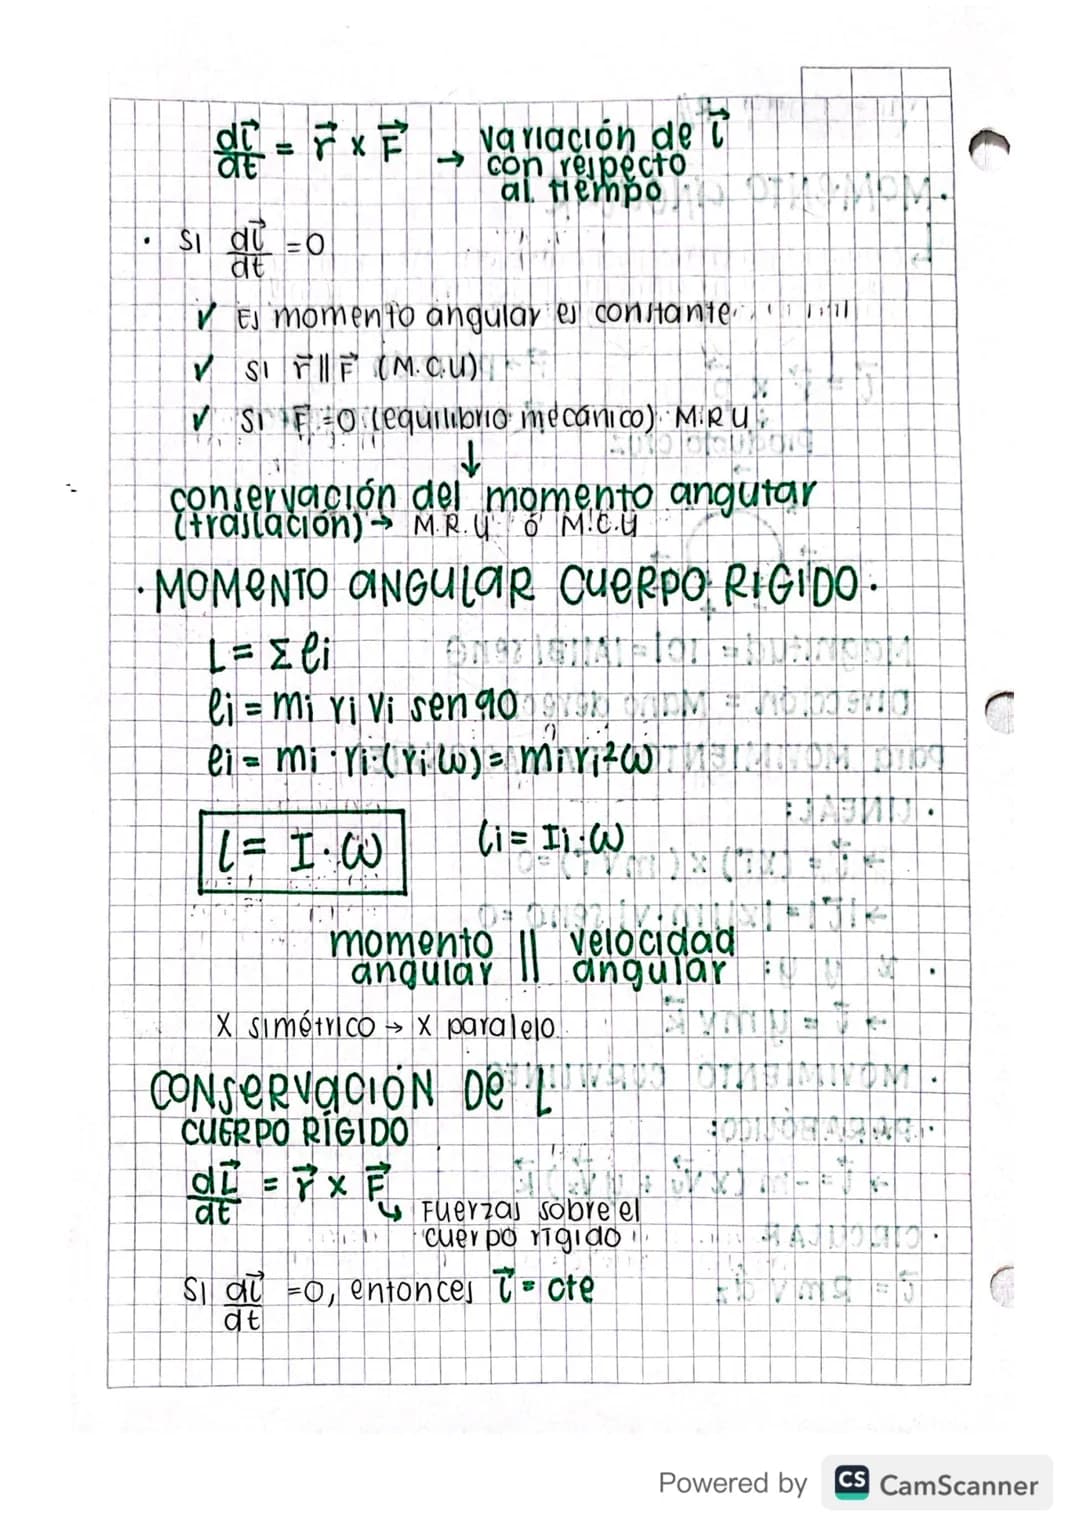 dl⃗/dt = r⃗ x F⃗ → variación de l⃗
con respecto
al tiempo
· Si dl⃗/dt = 0
✓ El momento angular es constante
✓ si r⃗ || F⃗ (M.C.U)
✓ si F = 0 (equilibrio mecánico) M.R.U.
↓
conservación del momento angular
(traslación) → M.R.U ó M.C.U
· MOMENTO ANGULAR CUERPO RIGIDO.
L = Σ li
li = mi ri vi sen 90
li = mi · ri · (ri ω) = mi ri² ω
l = I · ω    li = Ii · ω
momento || velocidad
angular || angular
X simétrico → X paralelo
CONSERVACIÓN DE L
CUERPO RÍGIDO
dL⃗/dt = r⃗ x F⃗
↳ Fuerzas sobre el
cuerpo rígido
Si dl⃗/dt = 0, entonces l⃗ = cte
Powered by CS CamScanner